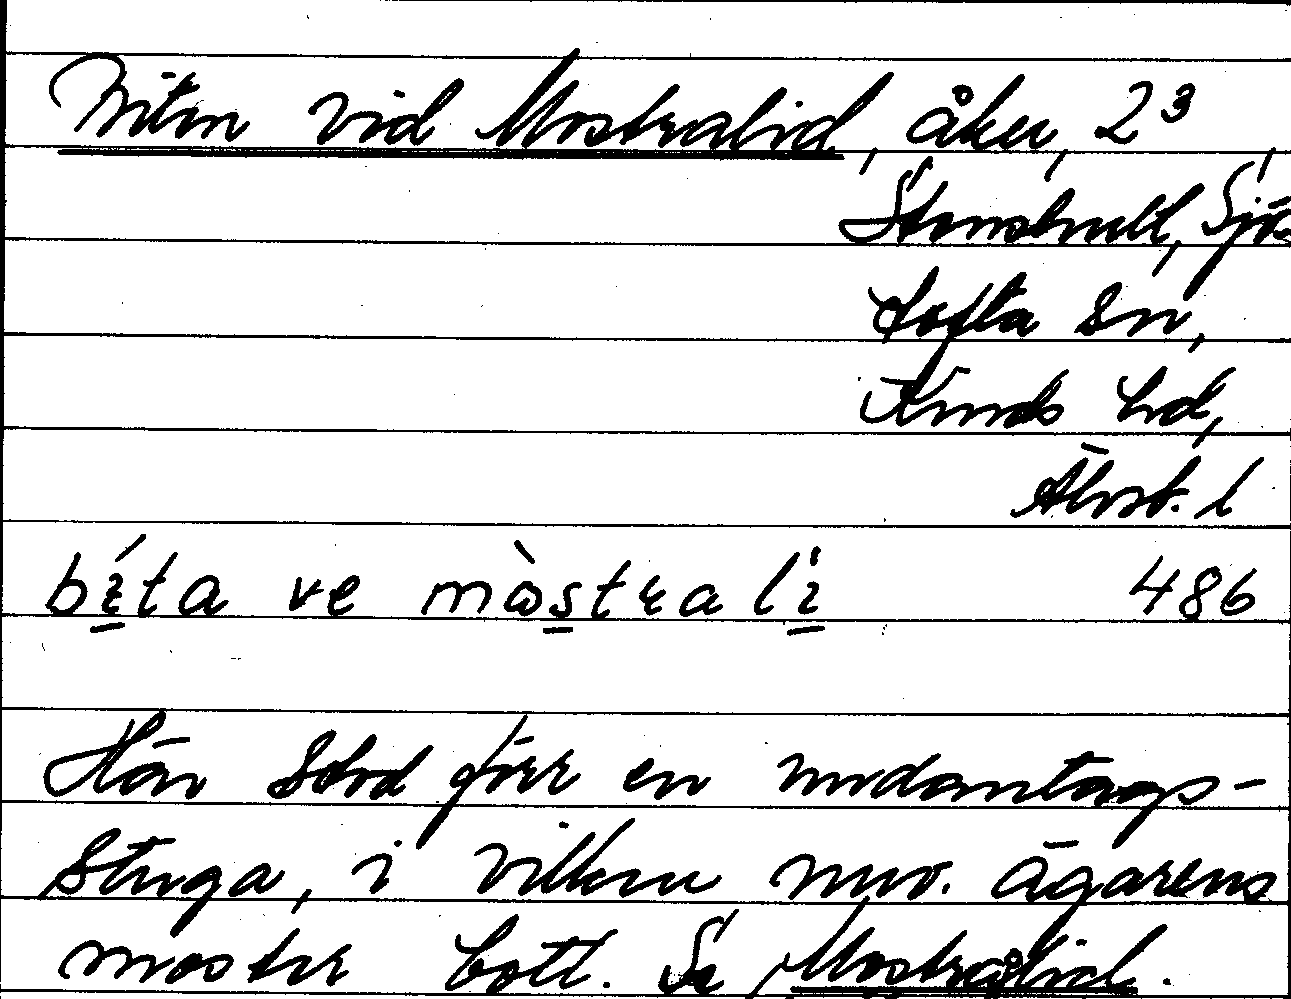 Biten vid Mostralid, åker, 2³,
Stensbult, Sjö-
tofta sn,
Kinds hd,
Älvsb. l
bíta ve mòstrali 486
Här stod förr en undantags-
stuga, i vilken nuv. ägarens
moster bott. Se Mostralid.